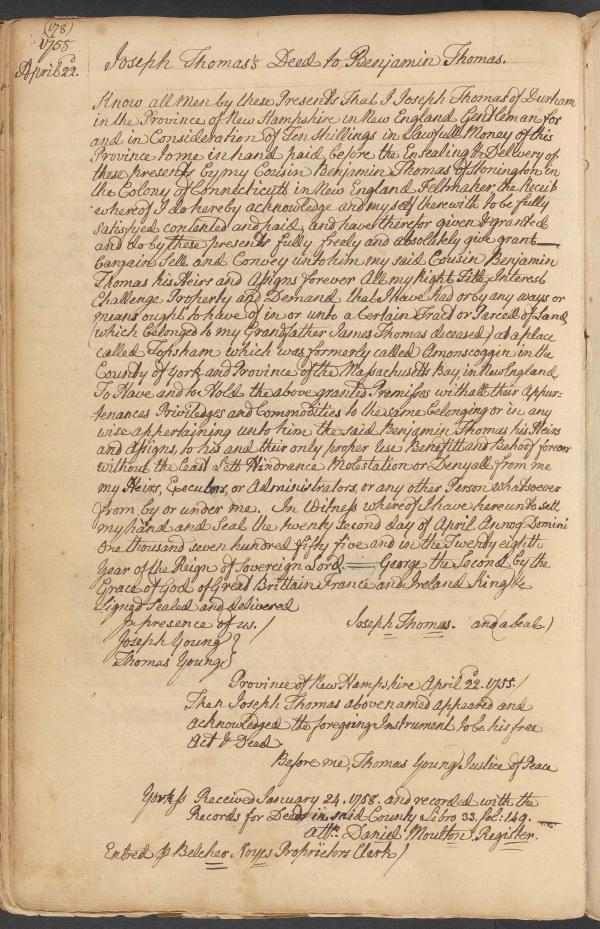 (178)
1755
April 22.d
Joseph Thomas's Deed to Benjamin Thomas.
Know all Men by these Presents That I Joseph Thomas of Durham
in the Province of New Hampshire in New England Gentleman for
and in Consideration of Ten Shillings in Lawfull Money of this
Province to me in hand paid before the Ensealing & Delivery of
these presents by my Cousin Benjamin Thomas of Stonington in
the Colony of Connecticutt in New England Feltmaker the Receit
whereof I do hereby acknowledge and my self therewith to be fully
satisfyed contented and paid, and have therefor given & granted
and do by these presents fully freely and absolutely give grant
bargain Sell and Convey unto him my said Cousin Benjamin
Thomas his Heirs and Assigns forever All my Right Title Interest
Challenge Property and Demand that I have had or by any ways or
means ought to have of in or unto a Certain Tract or Parcel of Land
(which belonged to my Grandfather James Thomas deceased) at a place
called Topsham which was formerly called Amonscoggin in the
County of York and Province of the Massachusetts Bay in New England
To Have and to Hold the above granted Premisses with all their Appur=
tenances Priviledges and Commodities to the same belonging or in any
wise appertaining unto him the said Benjamin Thomas his Heirs
and Assigns, to his and their only proper Use Benefitt and Behoof forever
without the Least Lett Hindrance Molestation or Denyall from me
my Heirs, Executors, or Administrators, or any other Person whatsoever
from by or under me. In Witness whereof I have hereunto sett
my hand and Seal the twenty second day of April Annoq Domini
One thousand seven hundred fifty five and in the Twenty eighth
year of the Reign of Sovereign Lord George the Second by the
Grace of God of Great Brittain France and Ireland King &c
Signed Sealed and delivered
In presence of us. / Joseph Thomas. and (a Seal.)
Joseph Young }
Thomas Young }
Province of New Hampshire April 22.d 1755. /
Then Joseph Thomas above named appeared and
acknowledged the foregoing Instrument to be his free
Act & Deed
Before me, Thomas Young Justice of Peace
York ss Received January 24. 1758. and recorded with the
Records for Deeds in said County Libro 33. fol: 149.
Attr. Daniel Moulton Register.
Entred p Belcher Noyes Proprietors Clerk /